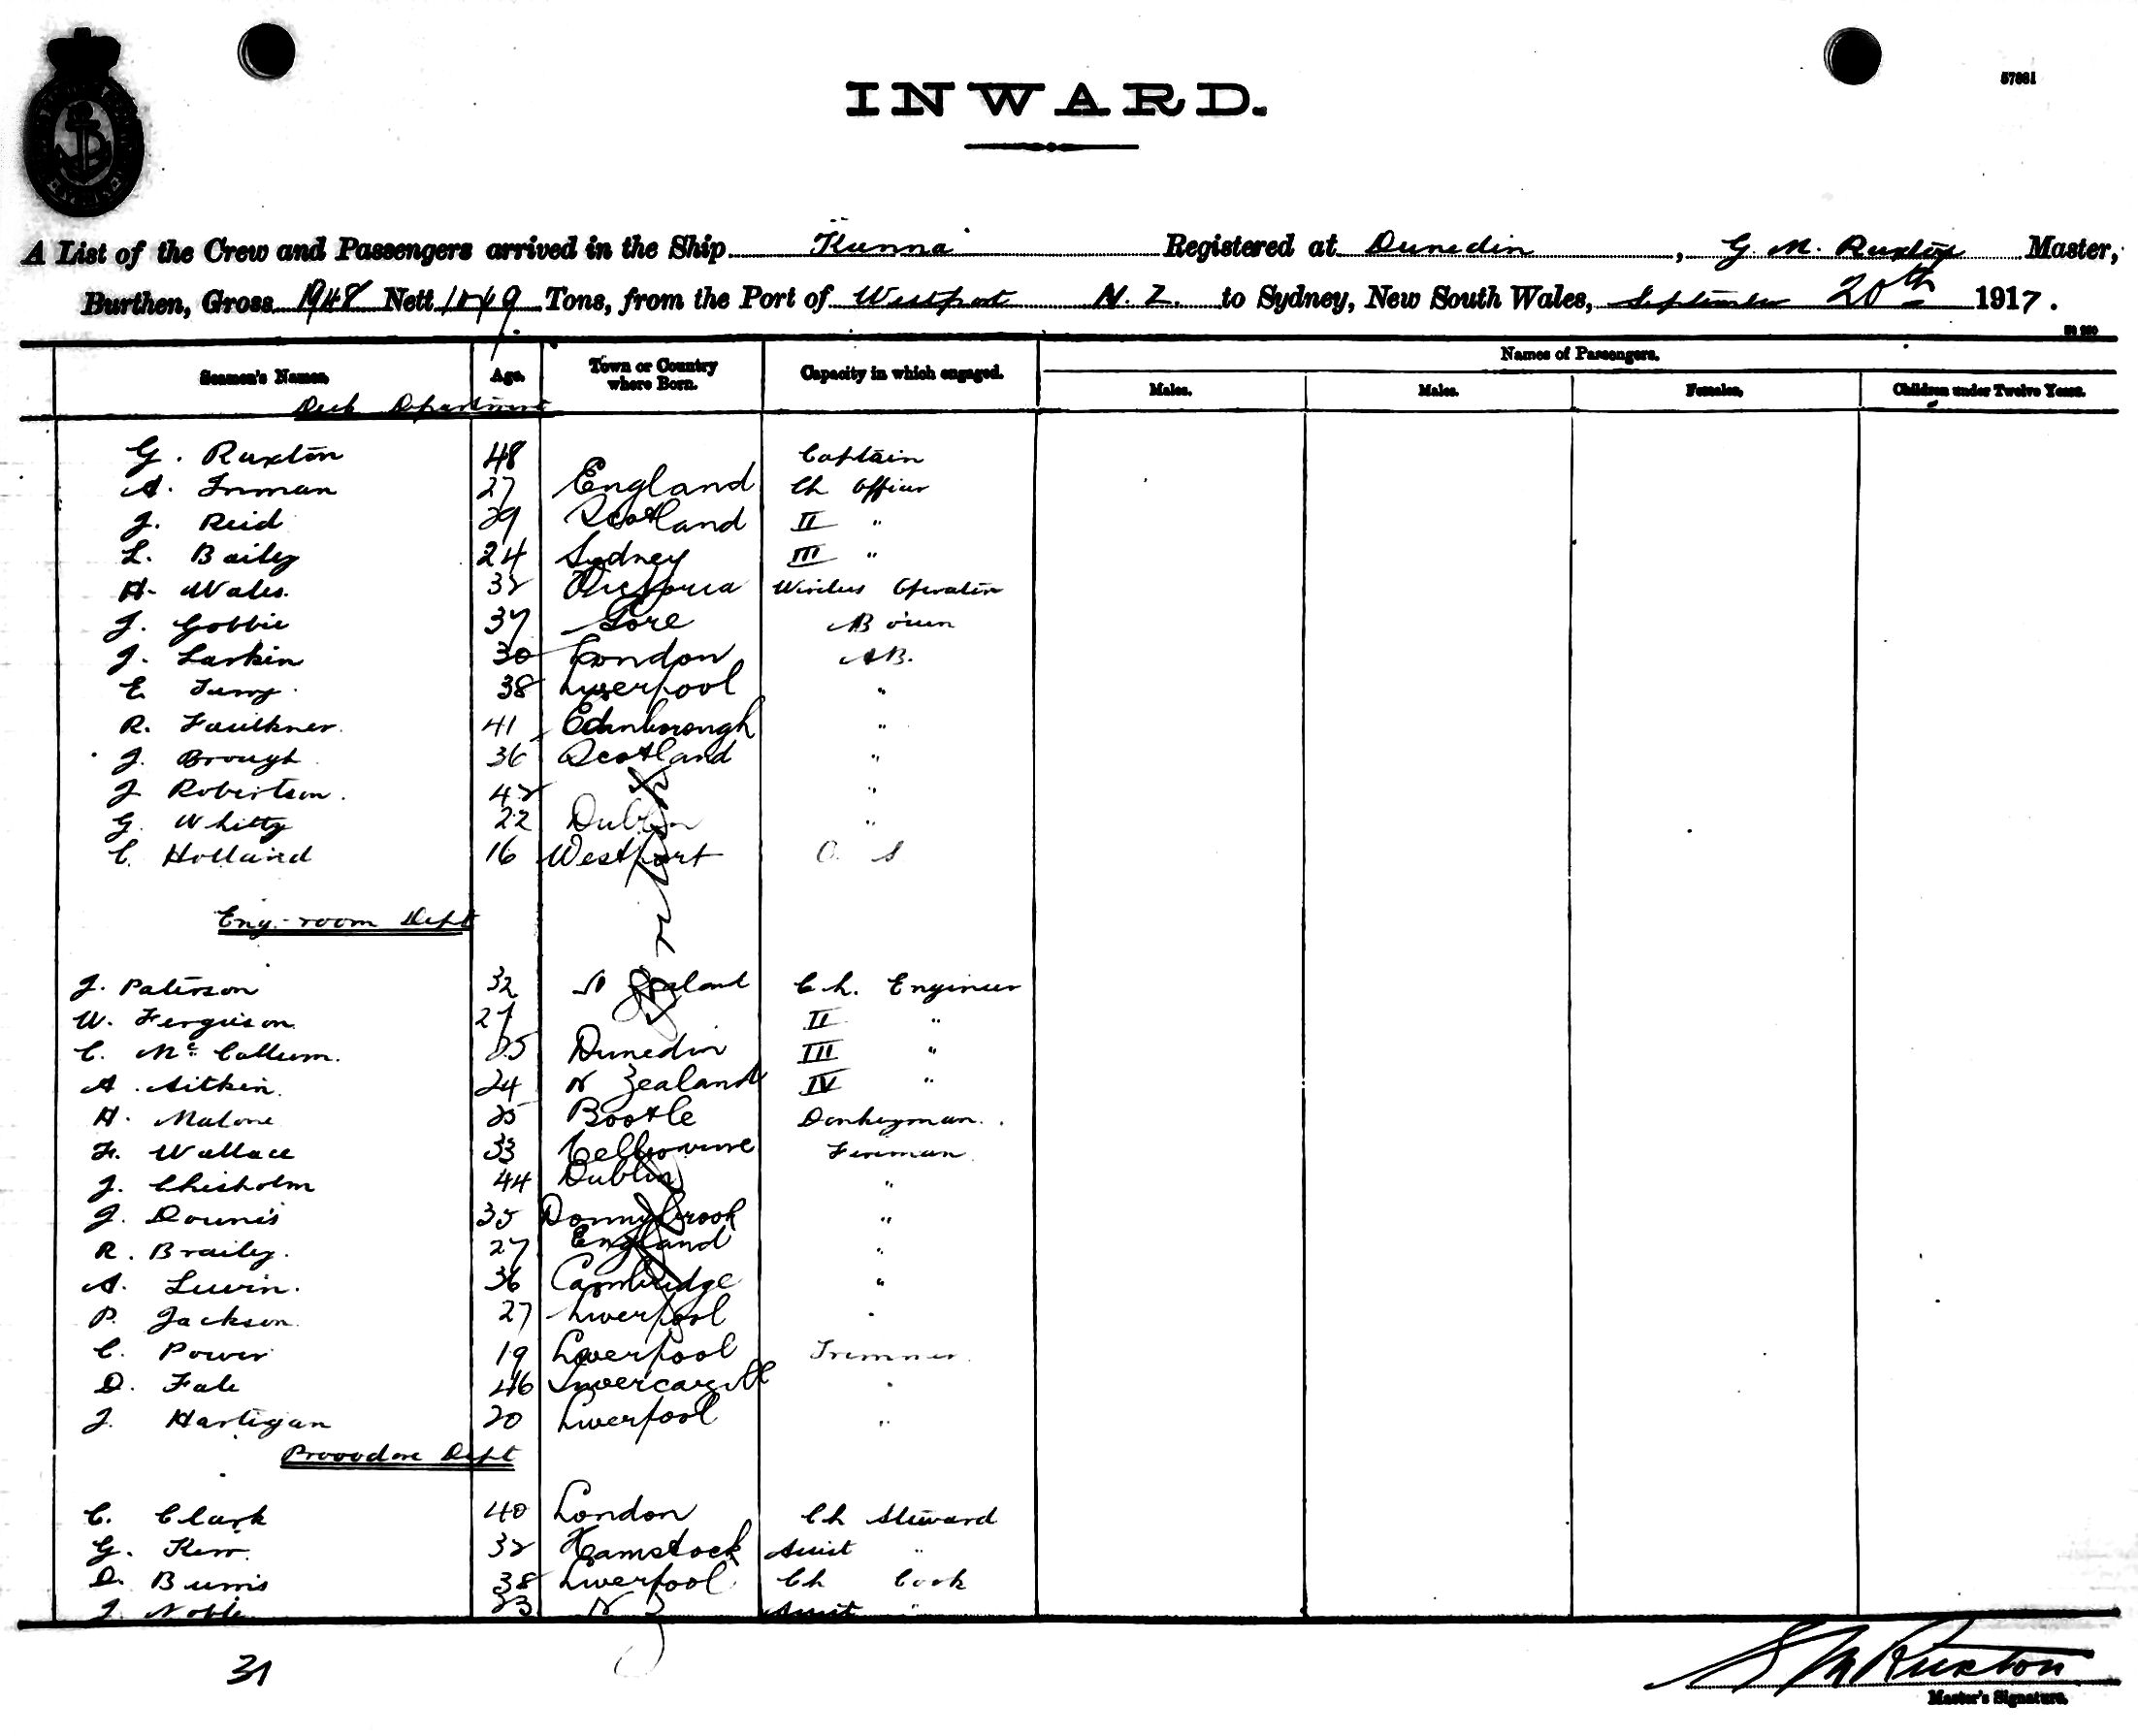 57681
INWARD.
A List of the Crew and Passengers arrived in the Ship Kunna Registered at Dunedin, G. M. Ruxton Master,
Burthen, Gross 1948 Nett Tons, from the Port of Westport N.Z. to Sydney, New South Wales, September 20th 1917.
Seamen's Names. Age. Town or Country where Born. Capacity in which engaged. Names of Passengers.
Males. Males. Females. Children under Twelve Years.
Deck Department
G. Ruxton 48 Captain
A. Inman 27 England Ch Officer
J. Reid 29 Scotland II "
L. Bailey 24 Sydney III "
H. Wales. 32 Victoria Wireless Operator
J. Gobbie 37 Gore Bosun
J. Larkin 30 London AB.
E 38 Liverpool "
R. Faulkner. 41 Edinborough "
J. Brough 36 Scotland "
J Robertson. 42 "
G. Whitty 22 Dublin "
C. Holland 16 Westport O. S
Eng-room Dept
J. Paterson 32 N Zealand Ch. Engineer
W. Ferguson 27 II "
C. Mc Callum. 25 Dunedin III "
A. Aitkin. 24 N Zealand IV "
H. Malone 25 Bootle Donkeyman.
F. Wallace 33 Melbourne Fireman
J. Chisholm 44 Dublin "
J. Dounis 35 Donnybrook "
R. Brailey. 27 England "
A. Lewin. 36 Cambridge "
P. Jackson. 27 Liverpool "
C. Power 19 Liverpool Trimmer
D. Fale 46 Invercargill "
J. Hartigan 20 Liverpool "
Provodore Dept
C. Clark 40 London Ch Steward
G. Kerr. 32 Hamstock Assist "
D. Burris 38 Liverpool Ch Cook
J. Noble 23 N Z Assist "
31
G M Ruxton
Master's Signature.